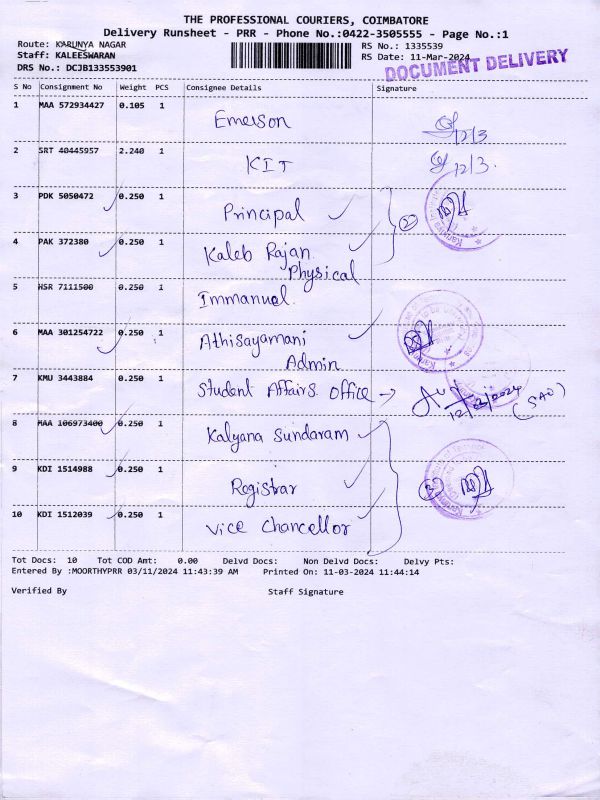 THE PROFESSIONAL COURIERS, COIMBATORE
Delivery Runsheet - PRR - Phone No.:0422-3505555 - Page No.:1
Route: KARUNYA NAGAR RS No.: 1335539
Staff: KALEESWARAN RS Date: 11-Mar-2024
DRS No.: DCJB133553901 DOCUMENT DELIVERY
S No Consignment No Weight PCS Consignee Details Signature
1 MAA 572934427 0.105 1 Emerson 12/3
2 SRT 40445957 2.240 1 KIT 12/3.
3 PDK 5050472 0.250 1 Principal
4 PAK 372380 0.250 1 Kaleb Rajan 2
Physical
5 HSR 7111500 0.250 1 Immanuel.
6 MAA 301254722 0.250 1 Athisayamani
Admin
7 KMU 3443884 0.250 1 Student Affairs Office → 12/3/2024 (SAO)
8 MAA 106973400 0.250 1 Kalyana Sundaram
9 KDI 1514988 0.250 1 Registrar 3
10 KDI 1512039 0.250 1 Vice Chancellor
Tot Docs: 10 Tot COD Amt: 0.00 Delvd Docs: Non Delvd Docs: Delvy Pts:
Entered By :MOORTHYPRR 03/11/2024 11:43:39 AM Printed On: 11-03-2024 11:44:14
Verified By Staff Signature